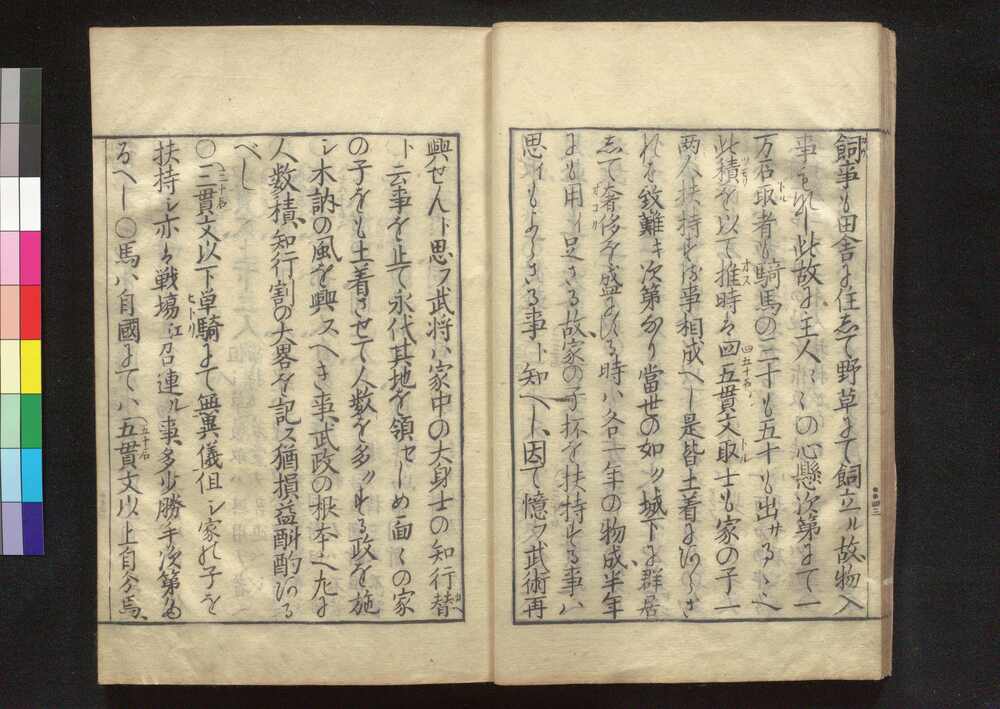 飼事も田舎に住して野草にて飼立ル故物入
事もなし此故に主人〻〻の心懸次第にて一
万石取者も騎馬の二十も五十も出サるゝ也
此積を以て推時は四五貫文取士も家の子一
両人扶持する事相成へし是皆土着にあらさ
れは致難キ次第なり當世の如ク城下に群居
して奢侈を盛にする時ハ各一年の物成、半年
にも用ィ足さる故、家の子杯を扶持する事ハ
思ィもよらさる事ト知へし、因て憶フ武術再
興せんト思フ武将ハ家中の大身士の知行替
ト云事を止て永代其地を領セしめ面〻の家
の子をも土着させて人数を多クする政を施
シ木訥の風を興スへき事、武政の根本也左に
人数積、知行割の大畧を記ス猶損益斟酌ある
べし
〇三貫文以下単騎にて無異儀但シ家の子を
扶持シ亦は戦場江召連ル事、多少勝手次第た
るへし〇馬ハ自國にてハ五貫文以上自分馬、